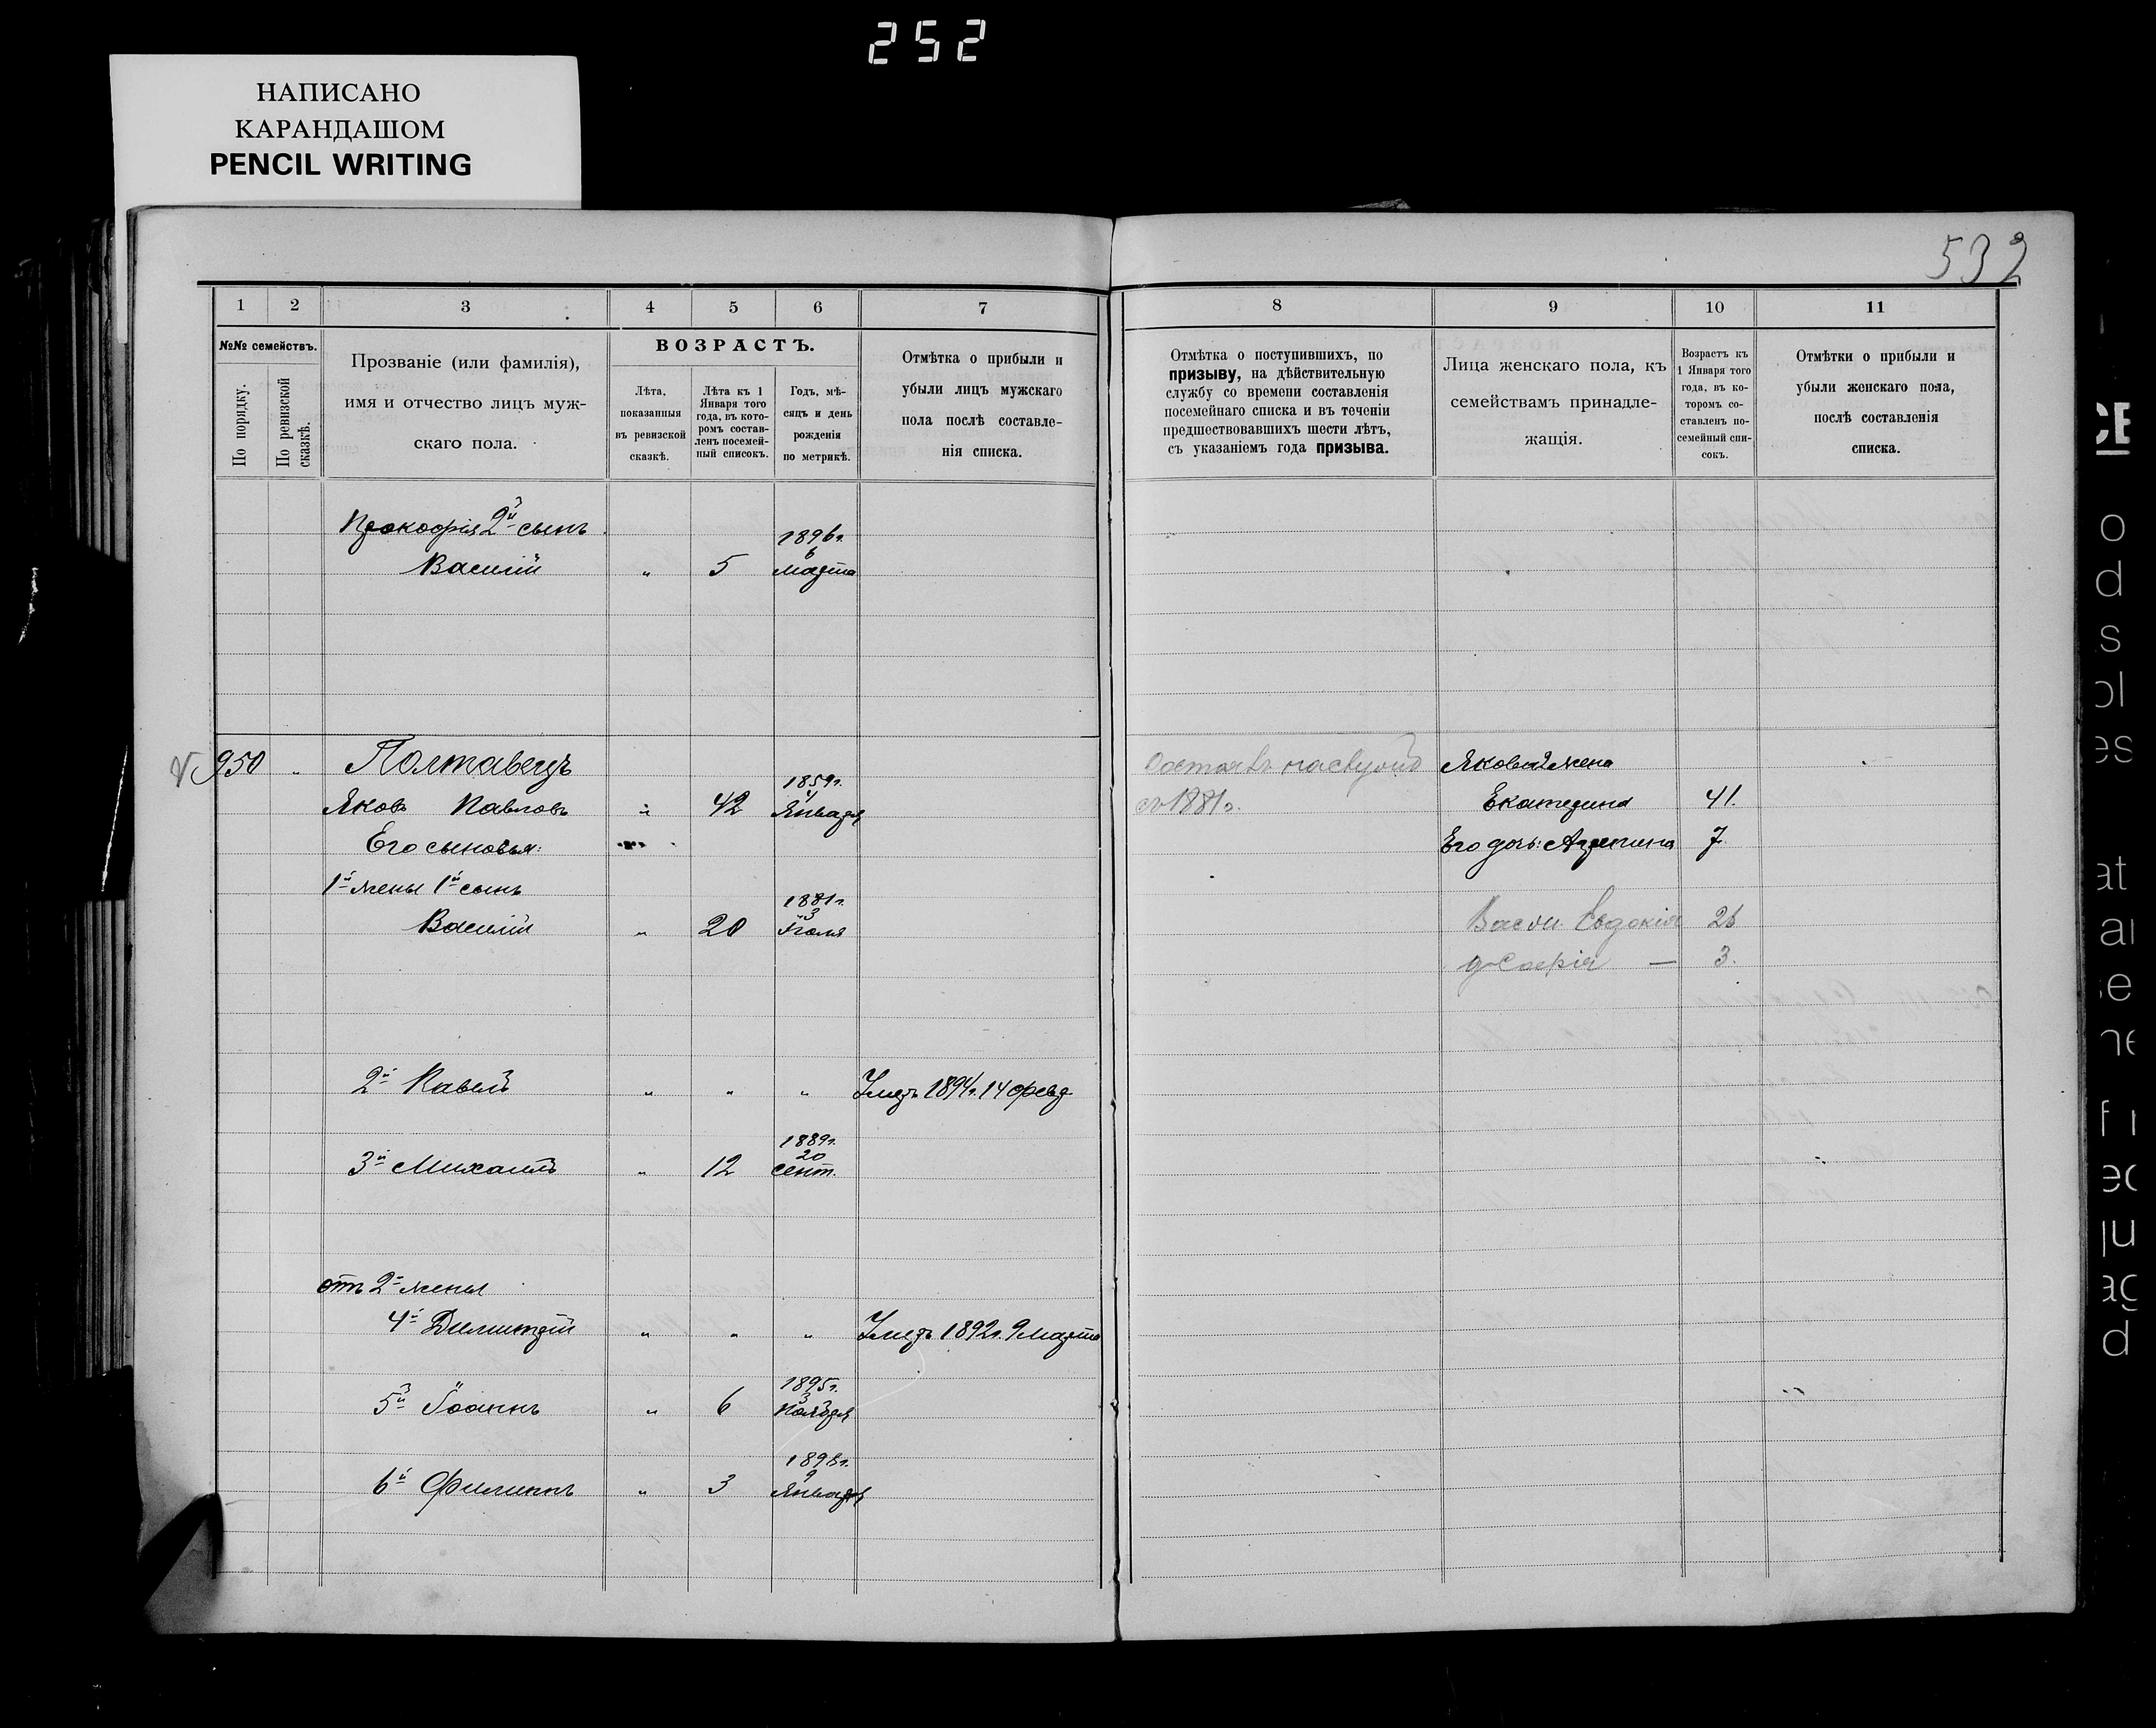 252
НАПИСАНО
КАРАНДАШОМ
PENCIL WRITING
532
1 2 3 4 5 6 7 8 9 10 11
№№ семействъ.
По порядку.
По ревизской сказкѣ.
Прозваніе (или фамилія),
имя и отчество лицъ муж-
скаго пола.
ВОЗРАСТЪ.
Лѣта,
показанныя
въ ревизской
сказкѣ.
Лѣта къ 1
Января того
года, въ кото-
ромъ состав-
ленъ посемей-
ный списокъ.
Годъ, мѣ-
сяцъ и день
рожденія
по метрикѣ.
Отмѣтка о прибыли и
убыли лицъ мужскаго
пола послѣ составле-
нія списка.
Отмѣтка о поступившихъ, по
призыву, на дѣйствительную
службу со времени составленія
посемейнаго списка и въ теченіи
предшествовавшихъ шести лѣтъ,
съ указаніемъ года призыва.
Лица женскаго пола, къ
семействамъ принадле-
жащія.
Возрастъ къ
1 Января того
года, въ ко-
торомъ со-
ставленъ по-
семейный спи-
сокъ.
Отмѣтки о прибыли и
убыли женскаго пола,
послѣ составленія
списка.
Прокофія 2й сынъ
1896г.
6
Василій " 5 Марта
950 " Полтавецъ
Якова 2 жена
1859г.
4
Яковъ Павловъ " 42 Января
съ 1881г.
Екатерина 41.
Его сыновья:
Его дочь: Агрепина 7.
1й жены 1й сынъ
1881г.
3
Василій " 20 Іюля
Евдокія 26
Софія — 3.
2й Павелъ " " " Умеръ 1894г. 14 февр.
1889г.
20
3й Михаилъ " 12 Сент.
отъ 2й жены
4й Димитрій " " " Умеръ 1892г. 9 Марта
1895г.
3
5й Іоаннъ " 6 Ноября
1898г.
9
6й Филиппъ " 3 Января